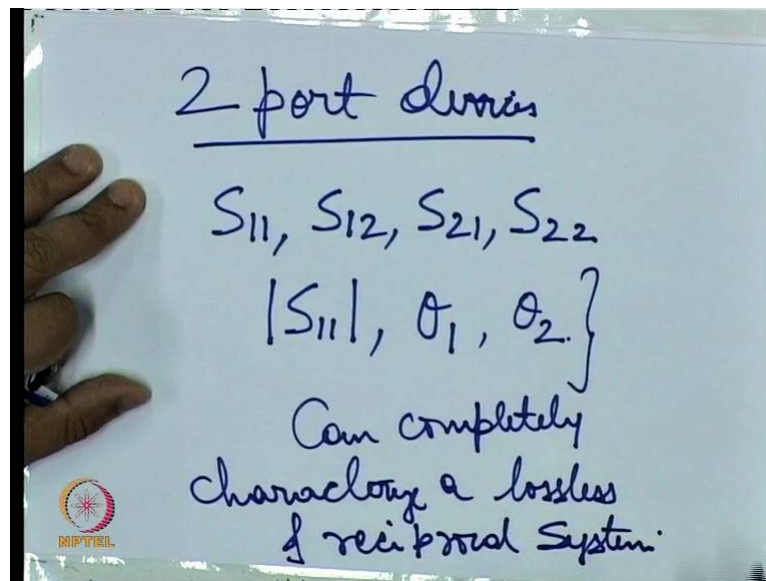 2 port devices
S11, S12, S21, S22
|S11|, θ1, θ2.}
Can completely
characterize a lossless
& reciprocal System.
NPTEL